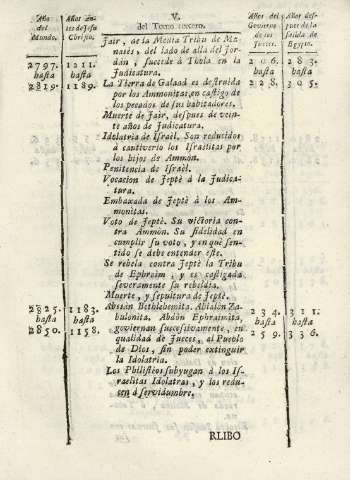 Año del Mundo.
Años antes de Jesu Christo.
V.
del Tomo tercero.
Años del Govierno de los Jueces.
Años despues de la salida de Egypto.
Jair, de la Media Tribu de Ma-
nasés, del lado de allá del Jor-
dán, succede à Thola en la
Judicatura.
2797. hasta 2819.
1211. hasta 1189.
206. hasta 228.
283. hasta 305.
La Tierra de Galaad es destruida
por los Ammonitas, en castigo de
los pecados de sus habitadores.
Muerte de Jair, despues de vein-
te años de Judicatura.
Idolatria de Israèl. Son reducidos
à cautiverio los Israelitas por
los hijos de Ammón.
Penitencia de Israèl.
Vocacion de Jeptè à la Judica-
tura.
Embaxada de Jeptè à los Am-
monitas.
Voto de Jeptè. Su victoria con-
tra Ammón. Su fidelidad en
cumplir su voto, y en què sen-
tido se debe entender este.
Se rebela contra Jeptè la Tribu
de Ephraim, y es castigada
severamente su rebeldia.
Muerte, y sepultura de Jeptè.
2825. hasta 2850.
1183. hasta 1158.
234. hasta 259.
311. hasta 336.
Abesàn Bethlehemita. Ahialòn Za-
bulonita. Abdòn Ephraimita,
goviernan successivamente, en
qualidad de Jueces, al Pueblo
de Dios, sin poder extinguir
la Idolatria.
Los Philistèos subyugan à los Is-
raelitas Idolatras, y los redu-
cen à servidumbre.
RLIBO